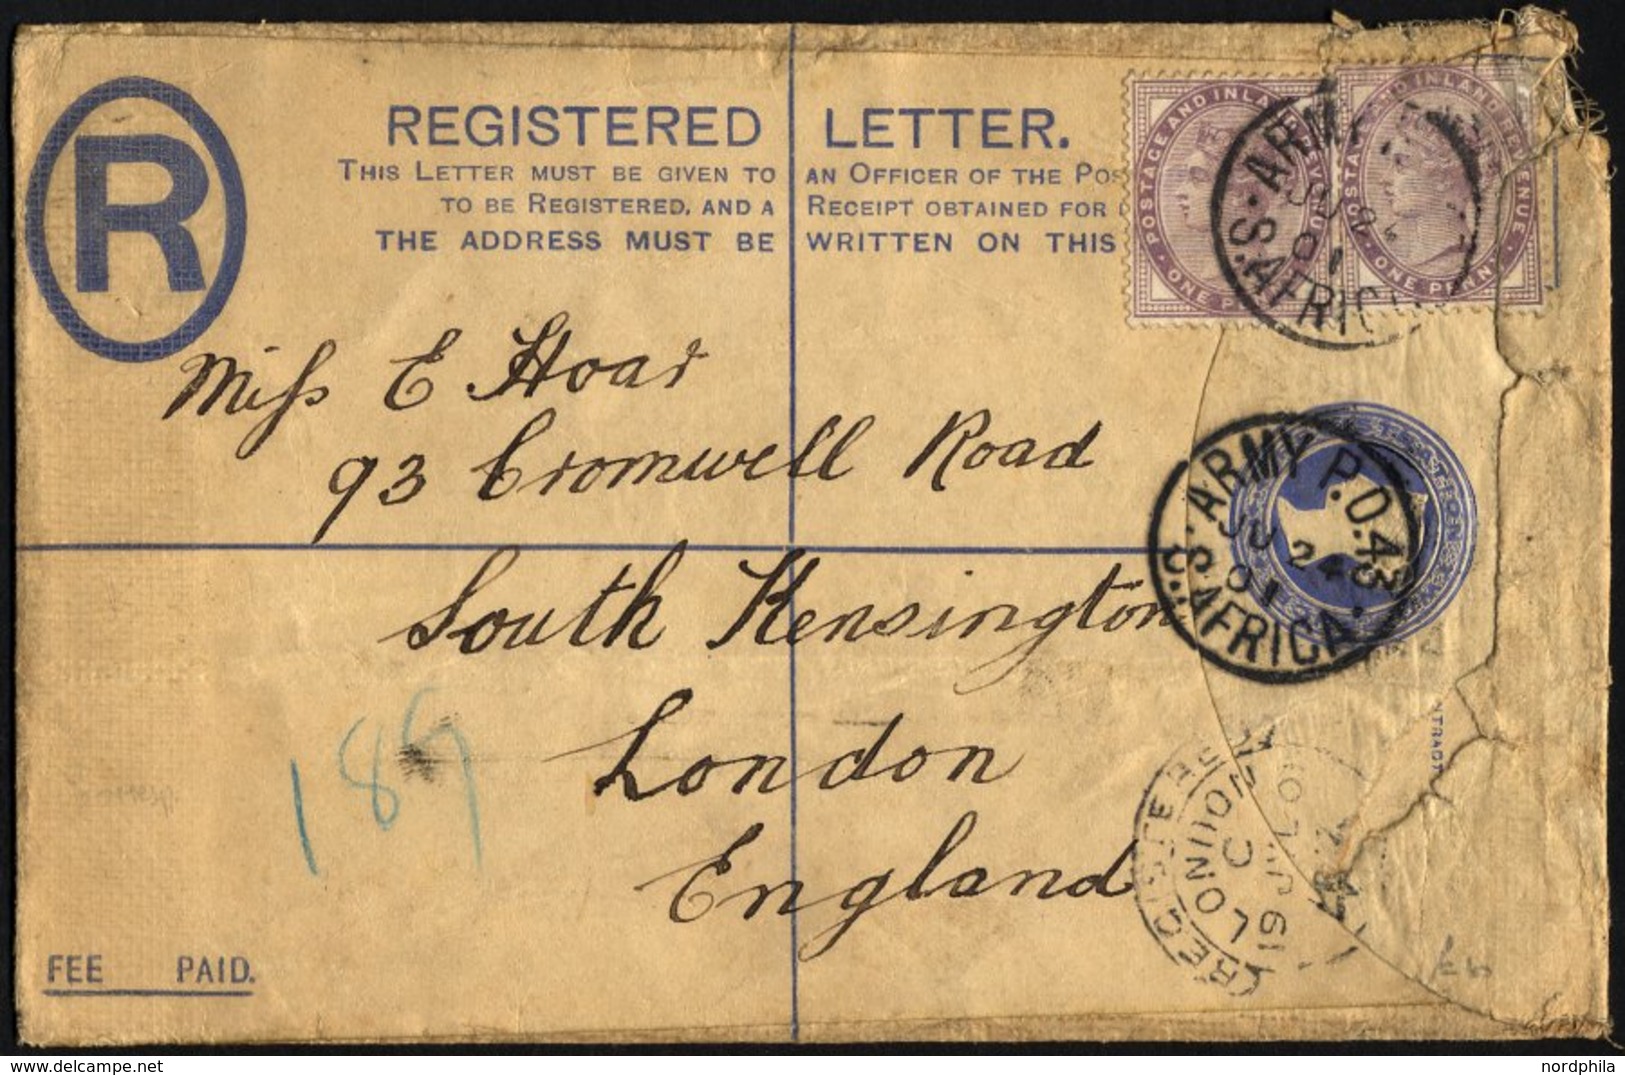 R
REGISTERED LETTER.
THIS LETTER MUST BE GIVEN TO AN OFFICER OF THE POS
TO BE REGISTERED, AND A RECEIPT OBTAINED FOR
THE ADDRESS MUST BE WRITTEN ON THIS
POSTAGE AND INLA
ONE P
POSTA AND INLAND REVENUE
ONE PENN
ARMY
JU 2
01
S. AFRIC
Miss E Hoar
93 Cromwell Road
South Kensington
London
England
ARMY P.O. 43
JU 24
01
S. AFRICA
189
REGISTERED
LONDON
C
19 JUL 01
NTRACT
FEE PAID.
nordphila